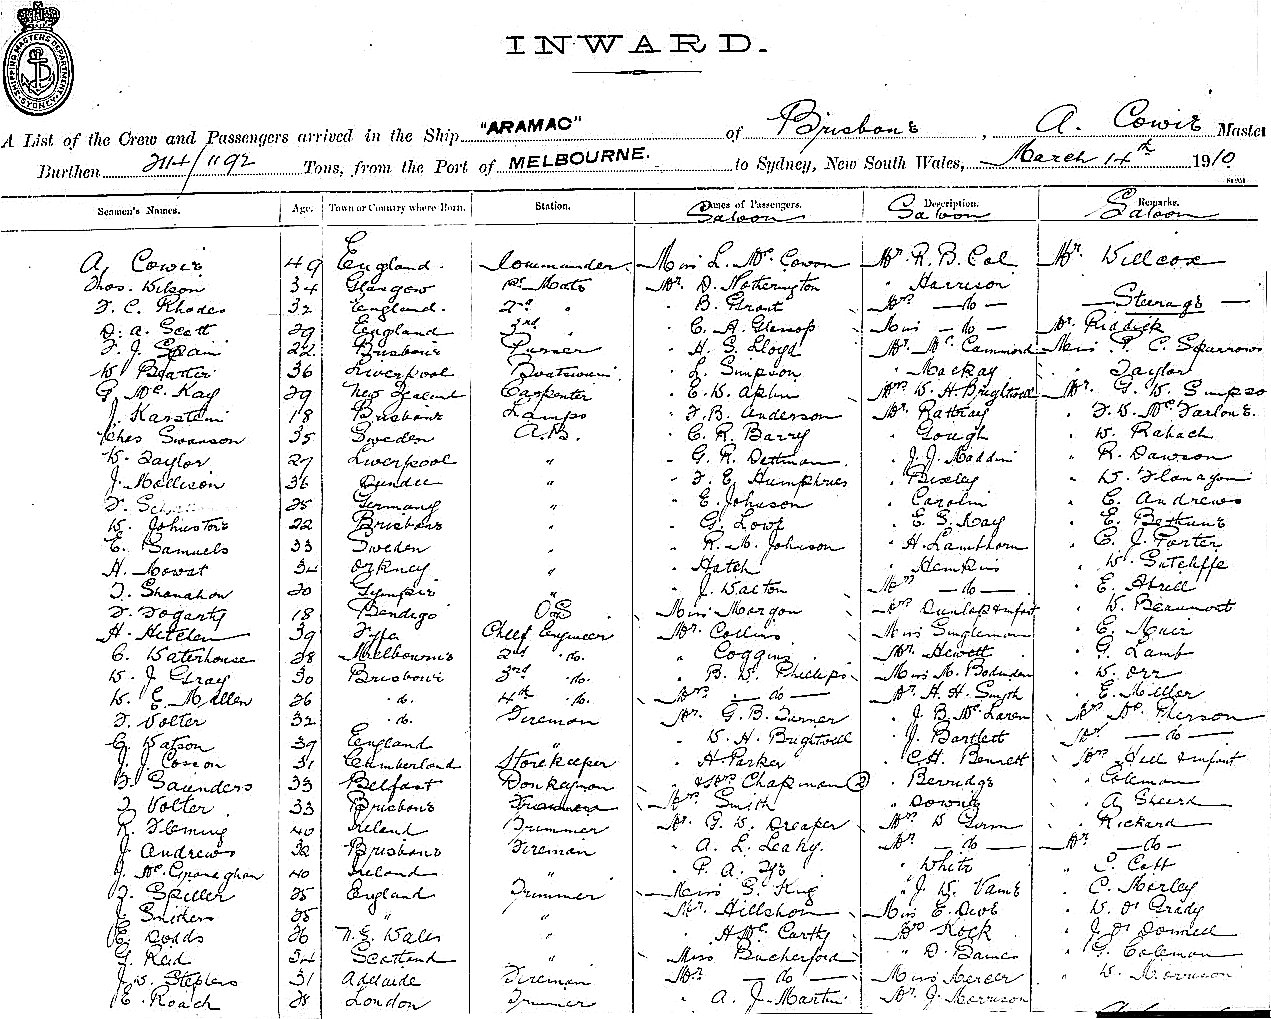 SHIPPING MASTERS DEPARTMENT SYDNEY
INWARD.
A List of the Crew and Passengers arrived in the Ship "ARAMAC" of Brisbane, A. Cowie Master
Burthen 2114/1192 Tons, from the Port of MELBOURNE. to Sydney, New South Wales, March 14th 1910
Seamen's Names. Age. Town or Country where Born. Station. Names of Passengers. Description. Remarks.
Saloon Saloon Saloon
A. Cowie 49 England. Commander Miss L. Mc Cowan Mr. R. B. Cal Mr. Willcox
Thos. Wilson 34 Glasgow 1st Mate Mr. D. Netherington " Harrison
F. C. Rhodes 32 England. 2nd " " B. Grant Mrs — do — — Steerage —
D. A. Scott 29 England 3rd " " C. A. Glenop Miss — do — Mr. Riddick
F. J. Spain 22 Brisbane Purser " H. S. Lloyd Mr. Mc Cammond Miss P. C. Sparrow
W. Baxter 36 Liverpool Boatswain " L. Simpson " Mackay " Taylor
G. Mc Kay 29 New Zealand Carpenter " E. W. Aplin Mrs W. H. Brightwell Mr. G. W. Simpso
J. Karstein 18 Brisbane Lamps " F. B. Anderson Mr. Rattray " F. W. Mc Farlane
Chas Swanson 35 Sweden A.B. " C. R. Barry " Gough " W. Rabach
W. Taylor 27 Liverpool " " G. R. Dettman " J. J. Maddin " R. Dawson
J. Mollison 36 Dundee " " F. E. Humphries " Bixley " W. Flanagan
F. 25 Germany " " E. Johnson " Carolin " C. Andrews
W. Johnstone 22 Brisbane " " G. Lowe " E. G. Kay " E. Bethune
E. Samuels 33 Sweden " " R. M. Johnson " H. Lamthorn " C. J. Porter
H. Mowat 34 Orkney " " Hatch " Hempkins " W. Sutcliffe
T. Shanahan 20 Gympie " " J. Walton Mrs — do — " E. Abell
F. Fogarty 18 Bendigo O.S Miss Morgan Mrs Dunlop & infant " W. Beaumont
H. Hitchen 39 Fife Chief Engineer Mr. Collins Miss Singleman " E. Muir
C. Waterhouse 28 Melbourne 2nd do. " Coggins Mr. Hewett " G. Lamb
W. J. Gray 30 Brisbane 3rd do. " B. W. Phillips Miss M. Bodinden " W. Orr
W. E. Mellen 26 do. 4th do. Mrs — do — Mr. H. H. Smyth " E. Miller
F. Volter 32 do. Fireman Mr. G. B. Turner " J. B. Mc Laren Mrs Mc Pherson
G. Watson 39 England " " W. H. Brightwell " J. Bartlett Mr — do —
J. J. Conon 31 Cumberland Storekeeper " H Parker " C. H. Bennett Mrs Hill & infant
B. Saunders 33 Belfast Donkeyman " & Mrs Chapman 2 " Berridge " Coleman
F. Volter 33 Brisbane Fireman Mrs Smith " Downy " A Sheard
R. Fleming 40 Ireland Trimmer Mr. G. W. Draper Mrs W Gorm " Rickard
J. Andrews 32 Brisbane Fireman " A. L. Leahy Mr — do — Mr. — do —
J. Mc Granaghan 40 Ireland " " P. A. " White " C. Catt
F. Spiller 25 England Trimmer Miss G. King " J. W. Vane " C. Morley
J. Snithers 25 " " Mr. Hillshon Miss E. Dwe " W. O' Grady
E. Dodds 26 N. S. Wales " " H Mc Carthy Mrs Kock " J. O' Donnell
G. Reid 34 Scotland " Miss Bucherford " D. Baines " G. Coleman
J. W. Stephens 31 Adelaide Fireman Mrs — do — Miss Mercer " W. Morrison
E. Roach 28 London Trimmer " A. J. Martin Mr. J. Morrison